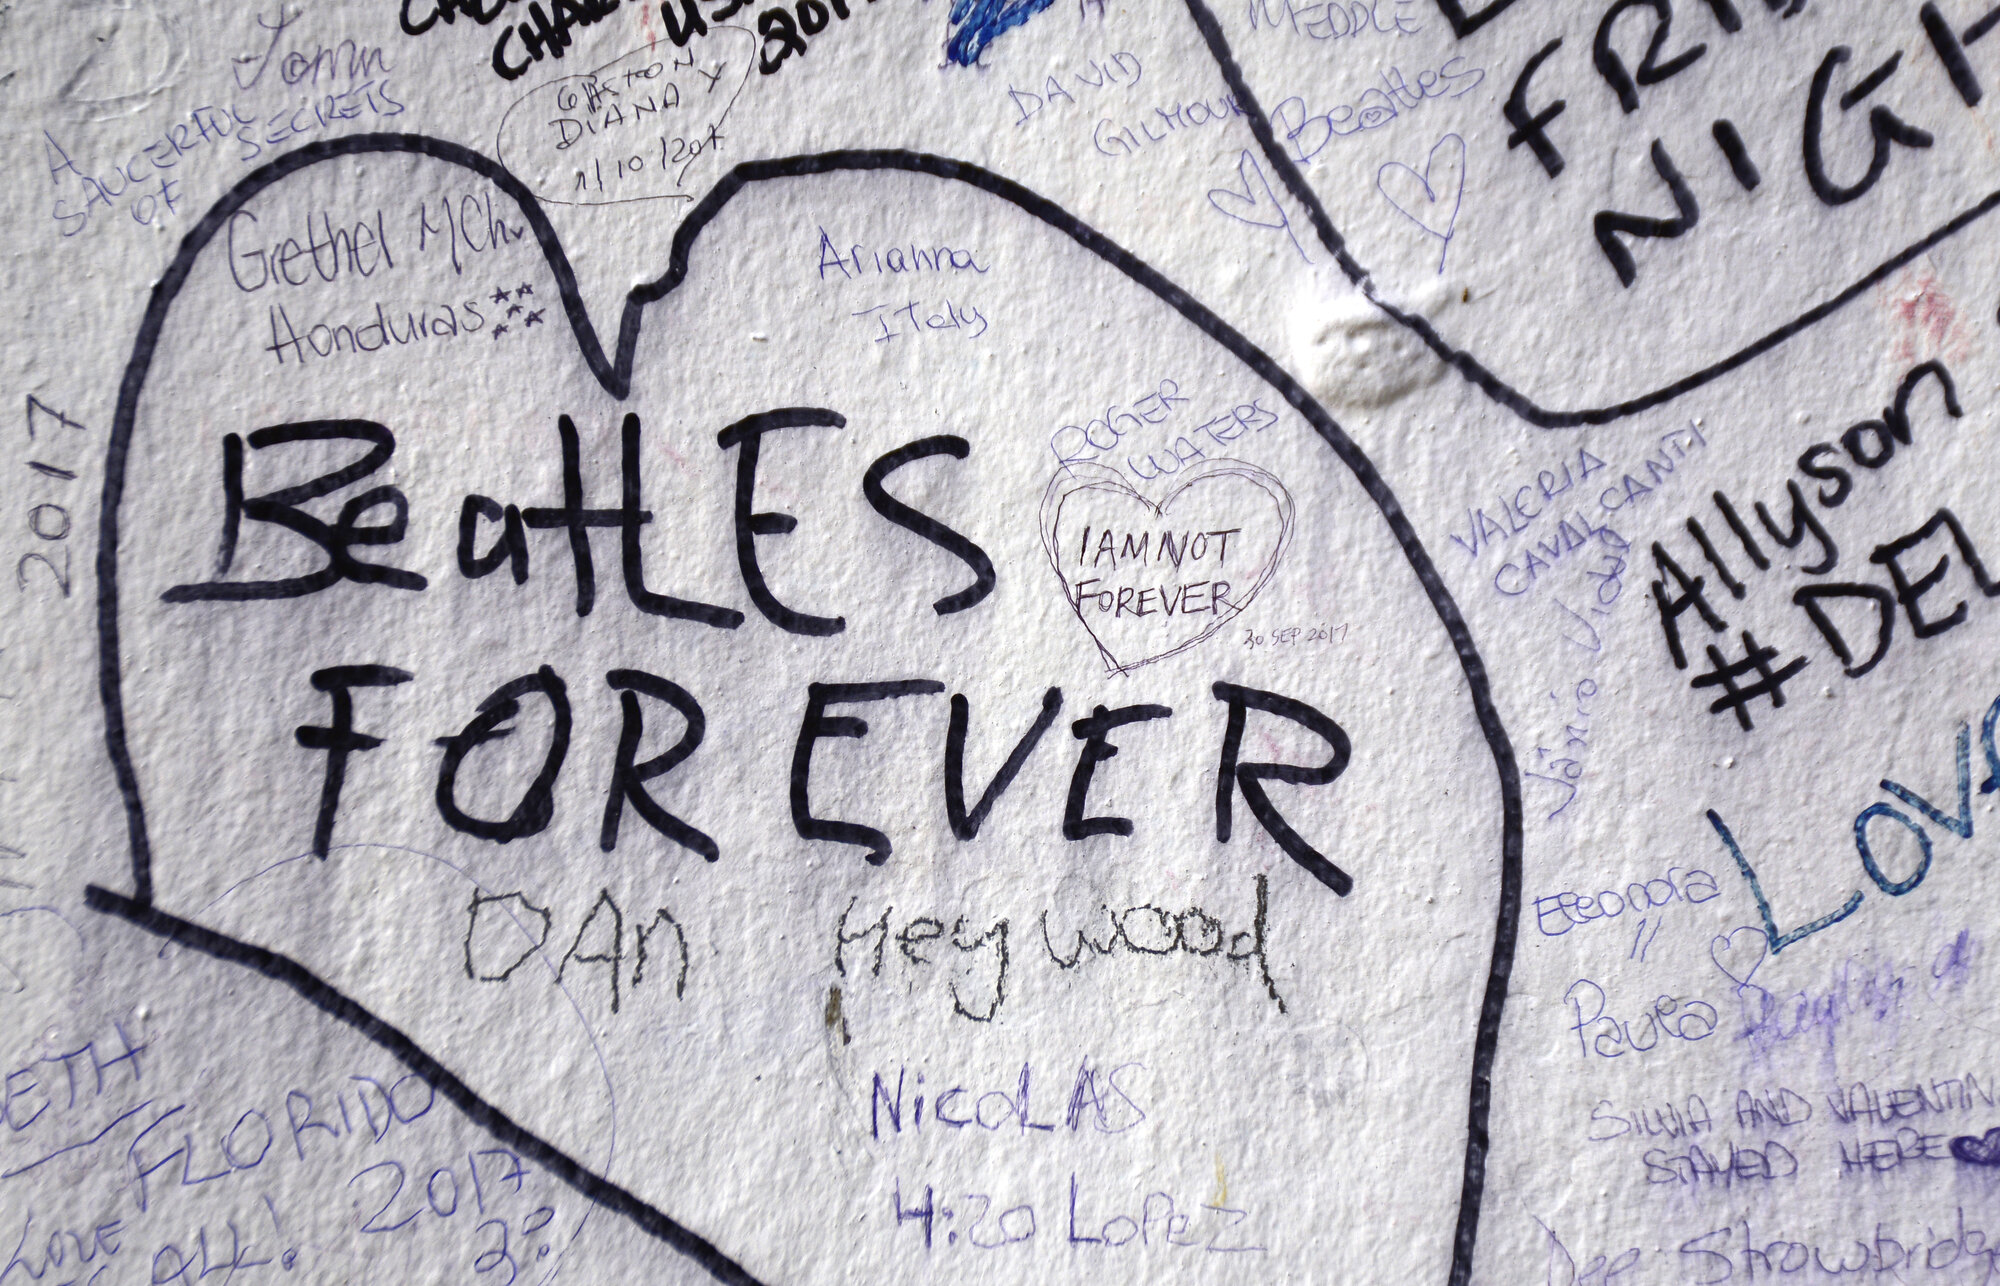 2017
Tomn
A
SAUCERFUL
OF
SECRETS
GASTON
DIANA Y
1/10/201
DAVID
GILMOUR
MEDDLE
Beatles
FRI
NIGH
Grethel MCh.
Honduras
Arianna
Italy
BeatLES
FOREVER
ROGER
WATERS
I AM NOT
FOREVER
30 SEP 2017
VALERIA
CAVALCANTI
Jânio Vidal
Allyson
#DEL
LOVE
DAn Heywood
NicoLAS
4:20 LoPEZ
Eleonora
Paula
SILVIA AND VALENTIN
STAYED HERE
Dee Strawbridge
ETH
FLORIDO
2017
LOVE
ALL!